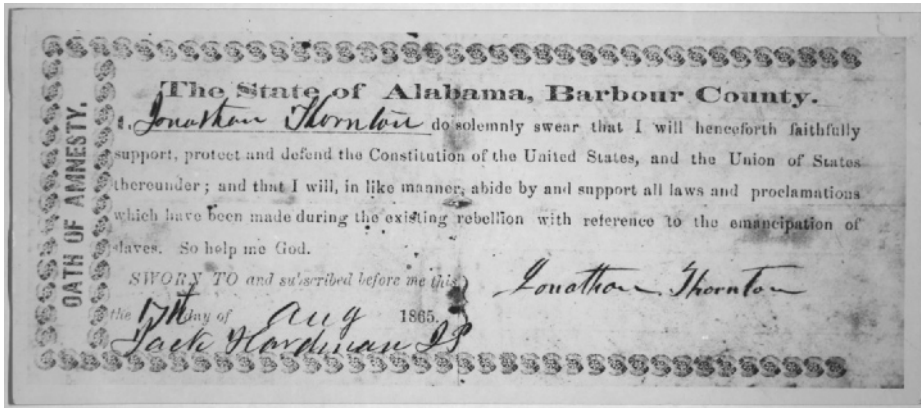 OATH OF AMNESTY.
The State of Alabama, Barbour County.
I, Jonathan Thornton do solemnly swear that I will henceforth faithfully
support, protect and defend the Constitution of the United States, and the Union of States
thereunder; and that I will, in like manner, abide by and support all laws and proclamations
which have been made during the existing rebellion with reference to the emancipation of
slaves. So help me God.
SWORN TO and subscribed before me this
Jonathan Thornton
the 17th day of Aug 1865.
Jack Hardman JP